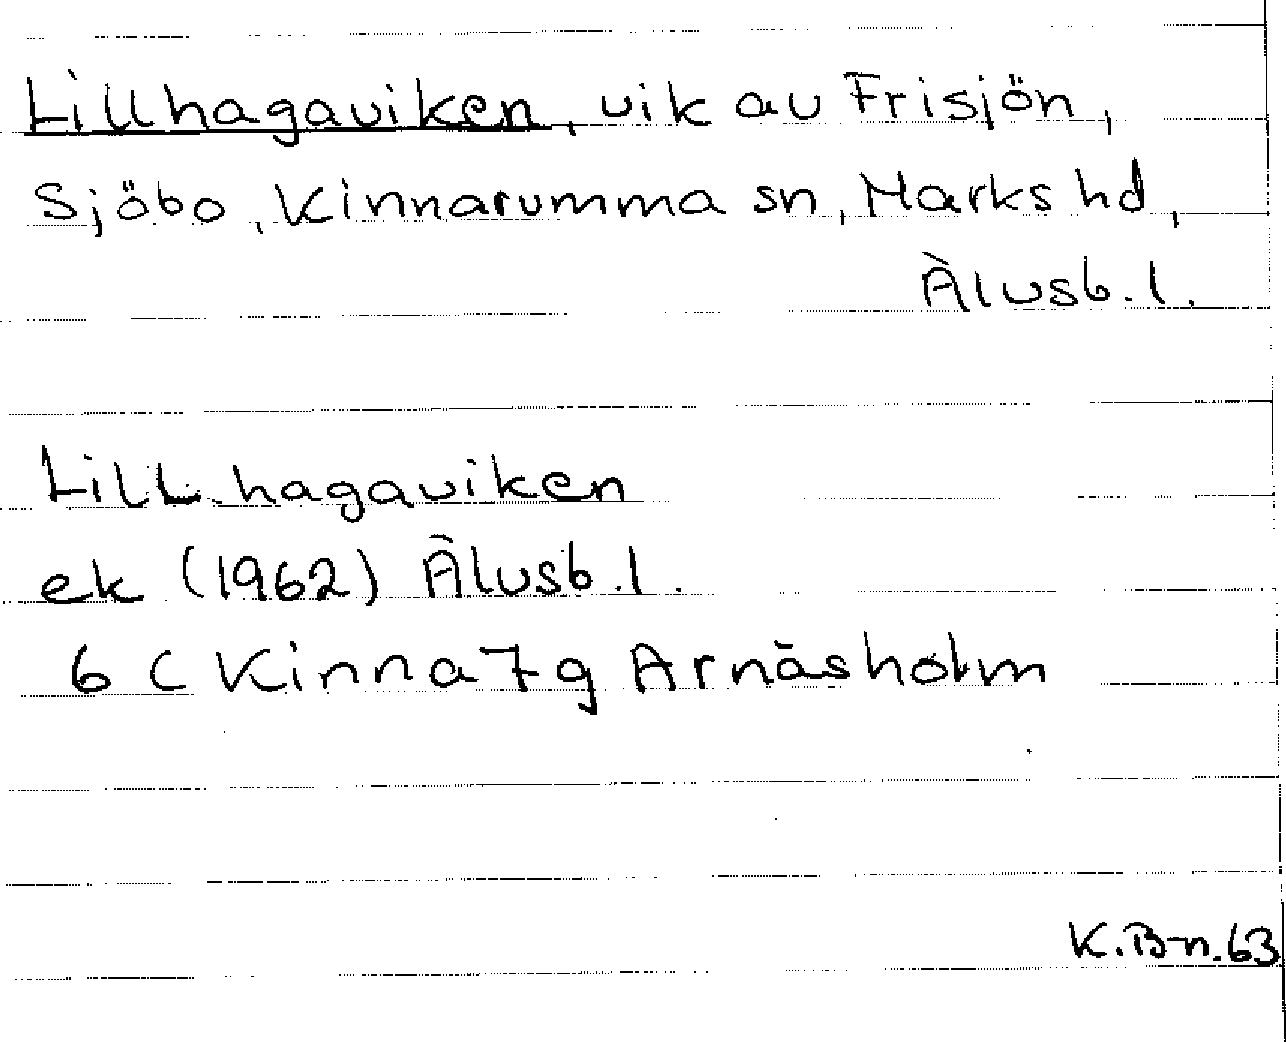 Lillhagaviken, vik av Frisjön,
Sjöbo, Kinnarumma sn, Marks hd,
Älvsb. l.
Lillhagaviken
ek (1962) Älvsb. l.
6 C Kinna 7g Arnäsholm
K.B-n. 63